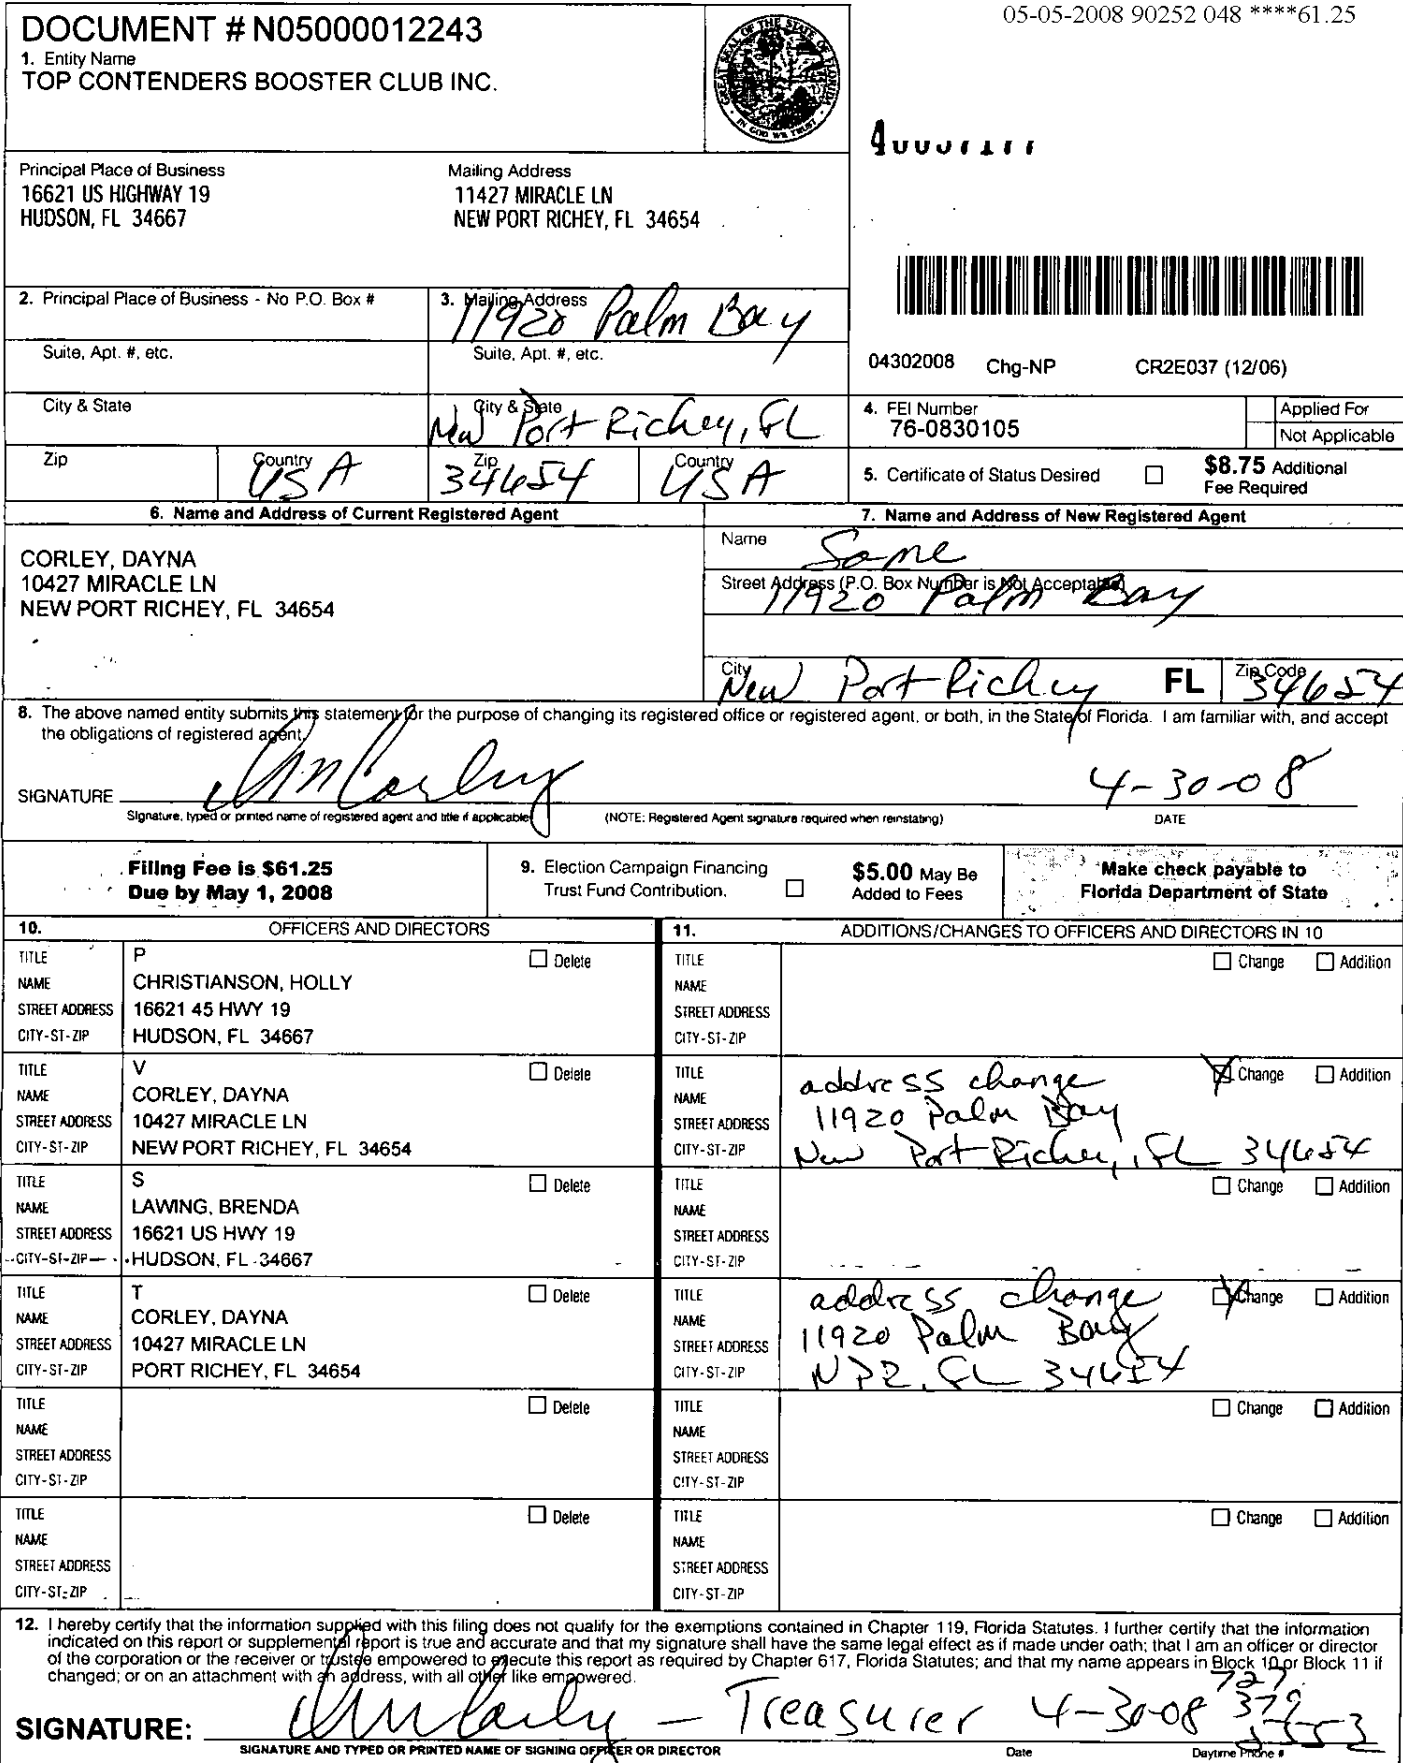 05-05-2008 90252 048 ****61.25
DOCUMENT # N05000012243
1. Entity Name
TOP CONTENDERS BOOSTER CLUB INC.
GREAT SEAL OF THE STATE OF FLORIDA
IN GOD WE TRUST
Principal Place of Business
16621 US HIGHWAY 19
HUDSON, FL 34667
Mailing Address
11427 MIRACLE LN
NEW PORT RICHEY, FL 34654
2. Principal Place of Business - No P.O. Box #
3. Mailing Address
11920 Palm Bay
Suite, Apt. #, etc.
Suite, Apt. #, etc.
04302008 Chg-NP CR2E037 (12/06)
City & State
City & State
New Port Richey, FL
4. FEI Number
76-0830105
Applied For
Not Applicable
Zip
Country
USA
Zip
34654
Country
USA
5. Certificate of Status Desired
$8.75 Additional
Fee Required
6. Name and Address of Current Registered Agent
CORLEY, DAYNA
10427 MIRACLE LN
NEW PORT RICHEY, FL 34654
7. Name and Address of New Registered Agent
Name
Same
Street Address (P.O. Box Number is Not Acceptable)
11920 Palm Bay
City
New Port Richey
FL
Zip Code
34654
8. The above named entity submits this statement for the purpose of changing its registered office or registered agent, or both, in the State of Florida. I am familiar with, and accept
the obligations of registered agent.
SIGNATURE
4-30-08
Signature, typed or printed name of registered agent and title if applicable
(NOTE: Registered Agent signature required when reinstating)
DATE
Filing Fee is $61.25
Due by May 1, 2008
9. Election Campaign Financing
Trust Fund Contribution.
$5.00 May Be
Added to Fees
Make check payable to
Florida Department of State
10. OFFICERS AND DIRECTORS
TITLE P Delete
NAME CHRISTIANSON, HOLLY
STREET ADDRESS 16621 45 HWY 19
CITY-ST-ZIP HUDSON, FL 34667
TITLE V Delete
NAME CORLEY, DAYNA
STREET ADDRESS 10427 MIRACLE LN
CITY-ST-ZIP NEW PORT RICHEY, FL 34654
TITLE S Delete
NAME LAWING, BRENDA
STREET ADDRESS 16621 US HWY 19
CITY-ST-ZIP HUDSON, FL 34667
TITLE T Delete
NAME CORLEY, DAYNA
STREET ADDRESS 10427 MIRACLE LN
CITY-ST-ZIP PORT RICHEY, FL 34654
TITLE Delete
NAME
STREET ADDRESS
CITY-ST-ZIP
TITLE Delete
NAME
STREET ADDRESS
CITY-ST-ZIP
11. ADDITIONS/CHANGES TO OFFICERS AND DIRECTORS IN 10
TITLE Change Addition
NAME
STREET ADDRESS
CITY-ST-ZIP
TITLE address change Change Addition
NAME
STREET ADDRESS 11920 Palm Bay
CITY-ST-ZIP New Port Richey, FL 34654
TITLE Change Addition
NAME
STREET ADDRESS
CITY-ST-ZIP
TITLE address change Change Addition
NAME
STREET ADDRESS 11920 Palm Bay
CITY-ST-ZIP NPR, FL 34654
TITLE Change Addition
NAME
STREET ADDRESS
CITY-ST-ZIP
TITLE Change Addition
NAME
STREET ADDRESS
CITY-ST-ZIP
12. I hereby certify that the information supplied with this filing does not qualify for the exemptions contained in Chapter 119, Florida Statutes. I further certify that the information
indicated on this report or supplemental report is true and accurate and that my signature shall have the same legal effect as if made under oath; that I am an officer or director
of the corporation or the receiver or trustee empowered to execute this report as required by Chapter 617, Florida Statutes; and that my name appears in Block 10 or Block 11 if
changed; or on an attachment with an address, with all other like empowered.
SIGNATURE: - Treasurer 4-30-08 727
SIGNATURE AND TYPED OR PRINTED NAME OF SIGNING OFFICER OR DIRECTOR
Date
Daytime Phone #